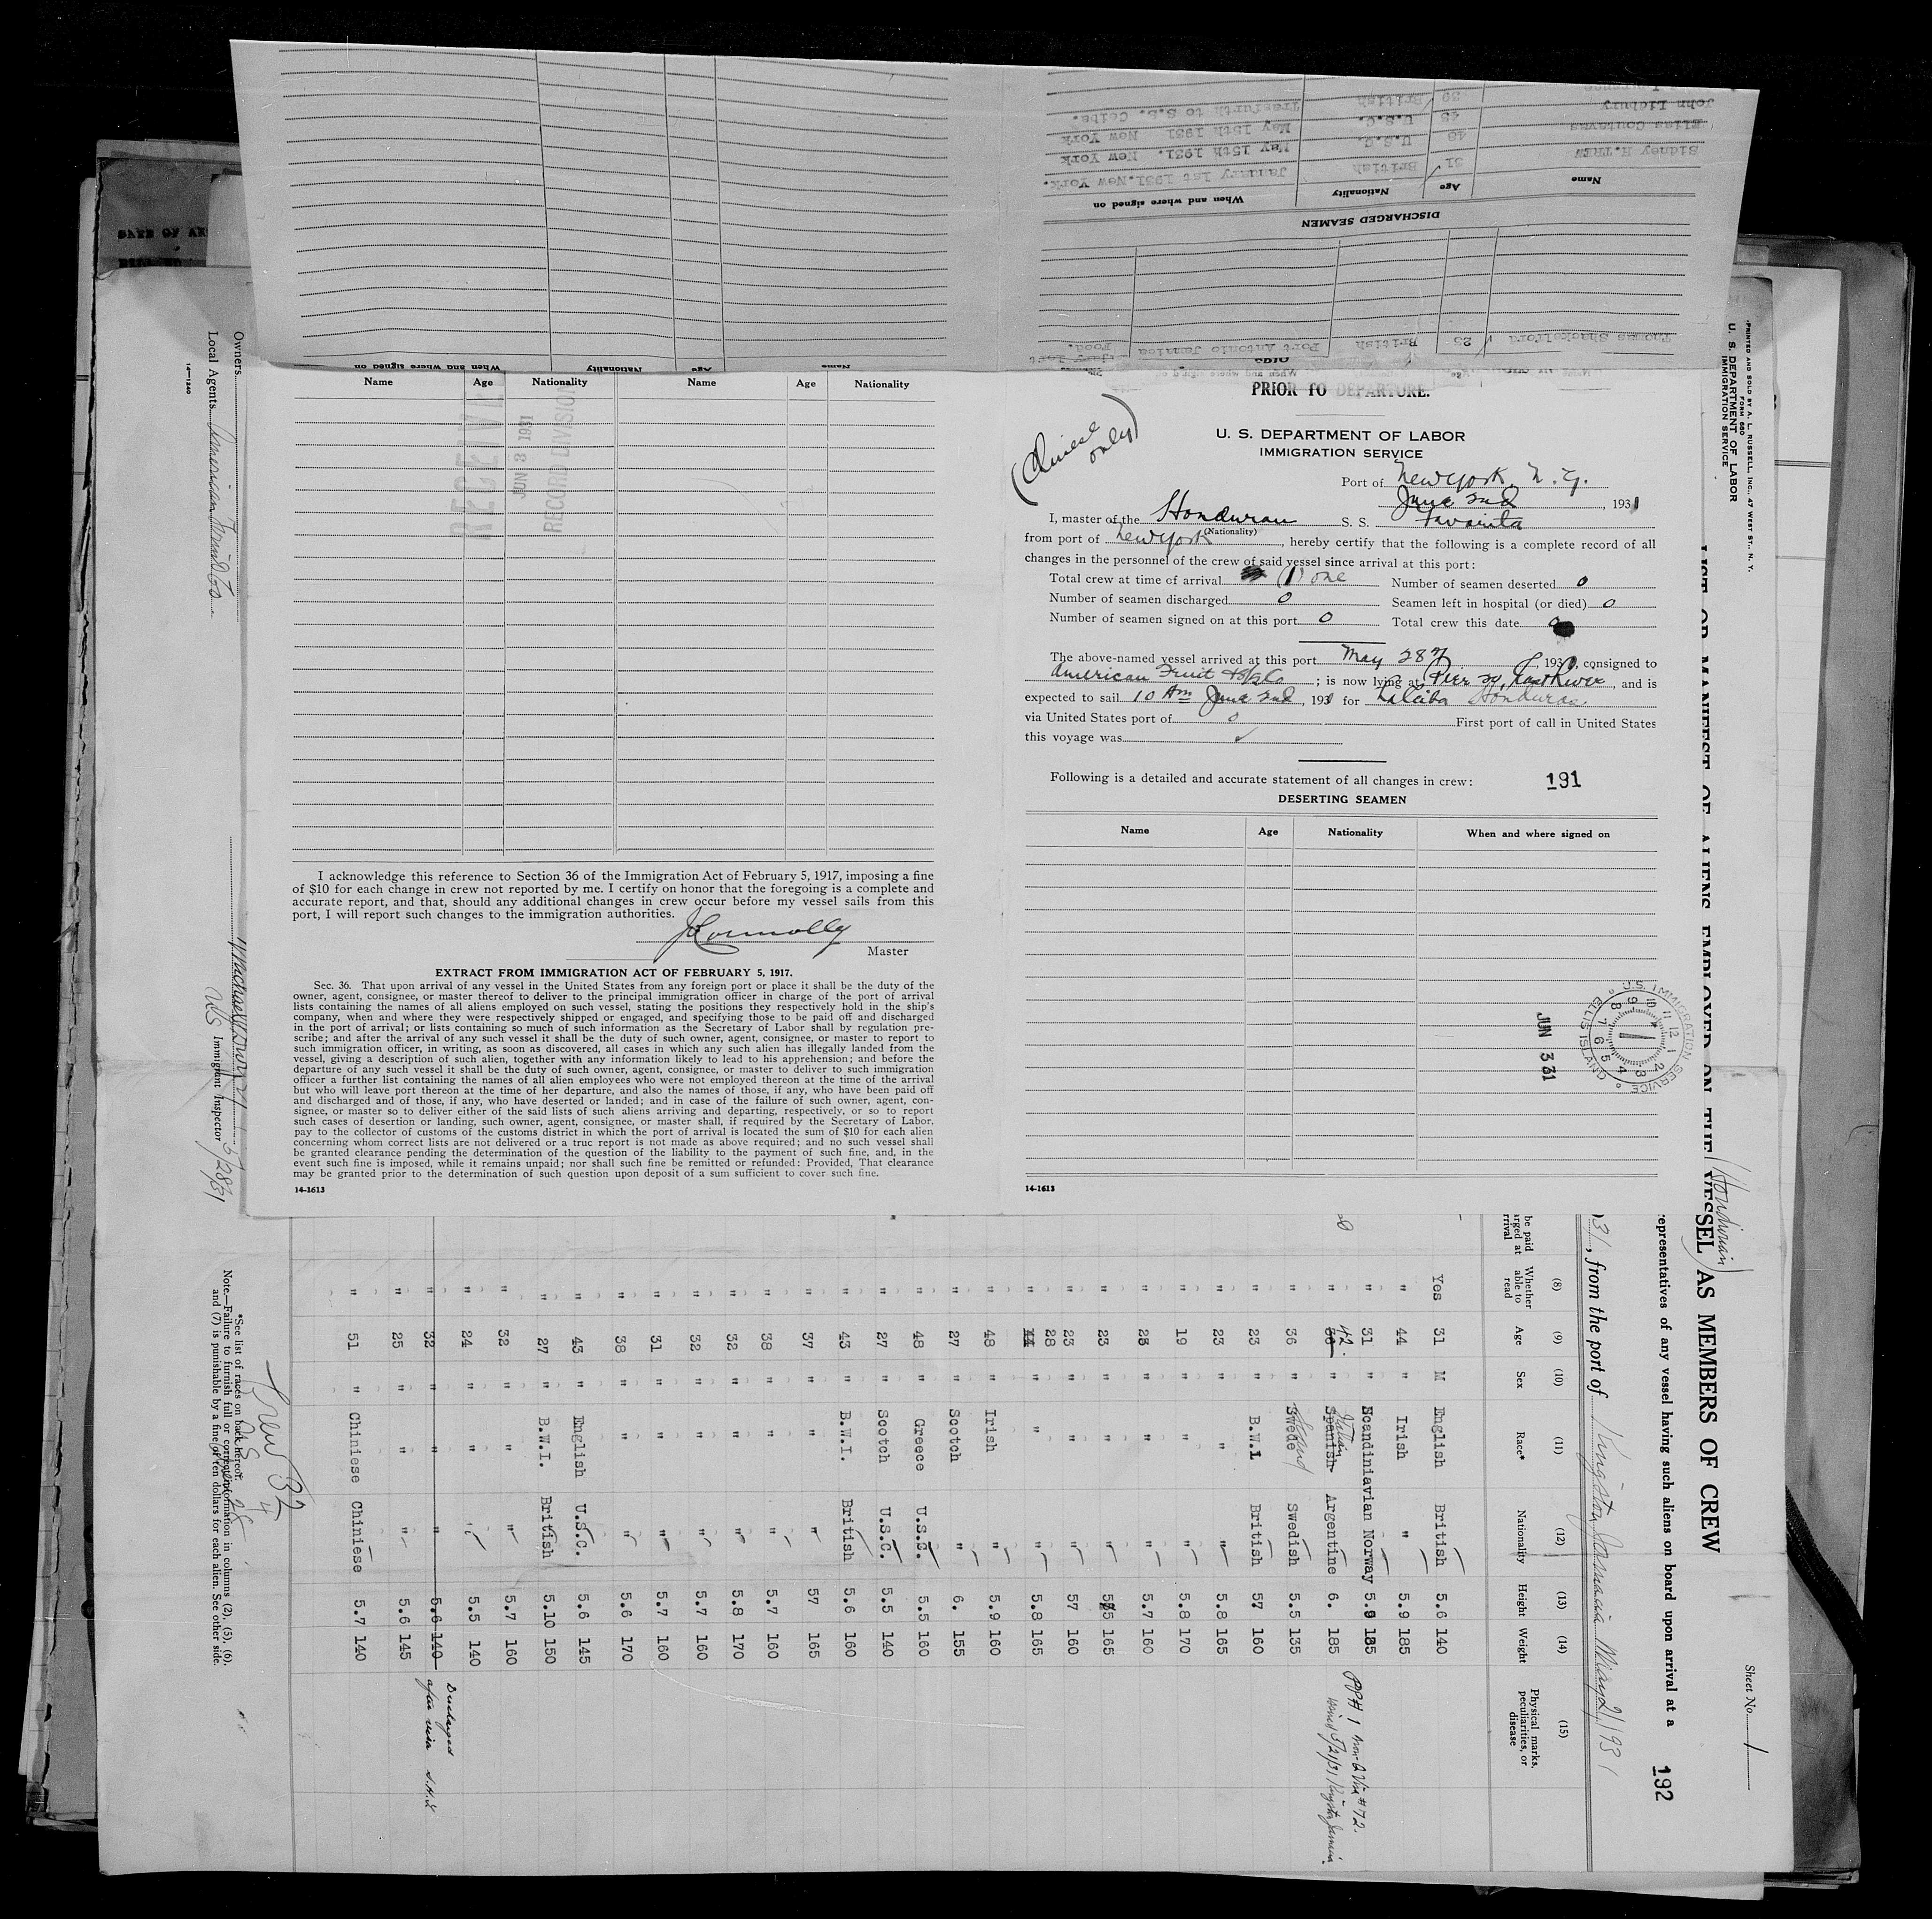 Thomas Shackelford 23 British Port Antonio Jamaica
DISCHARGED SEAMEN
Name Age Nationality When and where signed on
Sidney H. TREW 31 British January 1st 1931. New York.
Elias Coutavas 48 U.S.C. May 15th 1931. New York
John Lidbury 43 U.S.C. May 15th 1931 New York
39 British Trasfurth to S.S. Ceiba.
Name Age Nationality When and where signed on
Name Age Nationality Name Age Nationality
RECEIVED
JUN 3 1931
RECORD DIVISION
I acknowledge this reference to Section 36 of the Immigration Act of February 5, 1917, imposing a fine
of $10 for each change in crew not reported by me. I certify on honor that the foregoing is a complete and
accurate report, and that, should any additional changes in crew occur before my vessel sails from this
port, I will report such changes to the immigration authorities.
J Connolly
Master
EXTRACT FROM IMMIGRATION ACT OF FEBRUARY 5, 1917.
Sec. 36. That upon arrival of any vessel in the United States from any foreign port or place it shall be the duty of the
owner, agent, consignee, or master thereof to deliver to the principal immigration officer in charge of the port of arrival
lists containing the names of all aliens employed on such vessel, stating the positions they respectively hold in the ship's
company, when and where they were respectively shipped or engaged, and specifying those to be paid off and discharged
in the port of arrival; or lists containing so much of such information as the Secretary of Labor shall by regulation pre-
scribe; and after the arrival of any such vessel it shall be the duty of such owner, agent, consignee, or master to report to
such immigration officer, in writing, as soon as discovered, all cases in which any such alien has illegally landed from the
vessel, giving a description of such alien, together with any information likely to lead to his apprehension; and before the
departure of any such vessel it shall be the duty of such owner, agent, consignee, or master to deliver to such immigration
officer a further list containing the names of all alien employees who were not employed thereon at the time of the arrival
but who will leave port thereon at the time of her departure, and also the names of those, if any, who have been paid off
and discharged and of those, if any, who have deserted or landed; and in case of the failure of such owner, agent, con-
signee, or master so to deliver either of the said lists of such aliens arriving and departing, respectively, or so to report
such cases of desertion or landing, such owner, agent, consignee, or master shall, if required by the Secretary of Labor,
pay to the collector of customs of the customs district in which the port of arrival is located the sum of $10 for each alien
concerning whom correct lists are not delivered or a true report is not made as above required; and no such vessel shall
be granted clearance pending the determination of the question of the liability to the payment of such fine, and, in the
event such fine is imposed, while it remains unpaid; nor shall such fine be remitted or refunded: Provided, That clearance
may be granted prior to the determination of such question upon deposit of a sum sufficient to cover such fine.
14-1613
PRIOR TO DEPARTURE.
(Chinese only)
U. S. DEPARTMENT OF LABOR
IMMIGRATION SERVICE
Port of New York, N. Y.
June 2nd, 1931
I, master of the Honduran S. S. Tavarita
(Nationality)
from port of New York, hereby certify that the following is a complete record of all
changes in the personnel of the crew of said vessel since arrival at this port:
Total crew at time of arrival (1) one Number of seamen deserted 0
Number of seamen discharged 0 Seamen left in hospital (or died) 0
Number of seamen signed on at this port 0 Total crew this date
The above-named vessel arrived at this port May 28th, 193, consigned to
American Fruit; is now lying at Pier 39, East River, and is
expected to sail 10 Am June 2nd, 193 for La Ceiba Honduras
via United States port of 0 First port of call in United States
this voyage was
Following is a detailed and accurate statement of all changes in crew: 191
DESERTING SEAMEN
Name Age Nationality When and where signed on
U.S. IMMIGRATION SERVICE ELLIS ISLAND
JUN 3 31
14-1613
PRINTED AND SOLD BY A. L. RUSSELL, INC., 47 WEST ST., N. Y.
FORM 680
U. S. DEPARTMENT OF LABOR
IMMIGRATION SERVICE
Sheet No. 1
LIST OR MANIFEST OF ALIENS EMPLOYED ON THE VESSEL AS MEMBERS OF CREW
(Honduran)
representatives of any vessel having such aliens on board upon arrival at a 192
, from the port of Kingston Jamaica May 21 193
(8) (9) (10) (11) (12) (13) (14) (15)
Whether able to read Age Sex Race* Nationality Height Weight Physical marks, peculiarities, or disease
Yes 31 M English British 5.6 140
" 44 " Irish " 5.9 185
" 31 " Scandiniavian Norway 5.9 185
" 42 " Spanish Argentine 6. 185
" 36 " Swede Swedish 5.5 135
" 23 " B.W.I British 57 160
" 23 " " " 5.8 165
" 19 " " " 5.8 170
" 23 " " " 5.7 160
" 23 " " " 165
" 23 " " " 57 160
" 28 " " " 5.8 165
" 48 " Irish " 5.9 160
" 27 " Scotch " 6. 155
" 48 " Greece U.S.S. 5.5 160
" 27 " Scotch U.S.C. 5.5 140
" 43 " B.W.I. British 5.6 160
" 37 " " " 57 165
" 38 " " " 5.7 160
" 32 " " " 5.8 170
" 32 " " " 5.7 160
" 31 " " " 5.7 160
" 38 " " " 5.6 170
" 43 " English U.S.C. 5.6 145
" 27 " B.W.I. British 5.10 150
" 32 " " " 5.7 160
" 24 " " " 5.5 140
" 32 " " " 5.6 140
" 25 " " " 5.6 145
" 51 " Chiniese Chiniese 5.7 140
Crew 32
*See list of races on back hereof.
Note.—Failure to furnish full or correct information in columns (2), (5), (6),
and (7) is punishable by a fine of ten dollars for each alien. See other side.
Owners
Local Agents American Fruit Co
14—1240
Immigrant Inspector 5/28/31